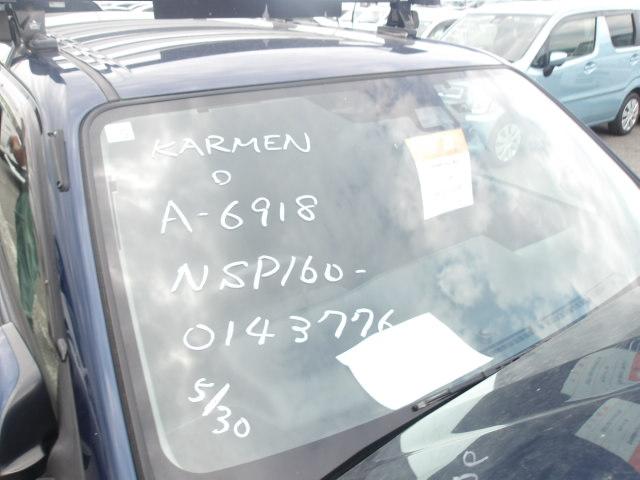 KARMEN
D
A-6918
NSP160-
0143776
5/30